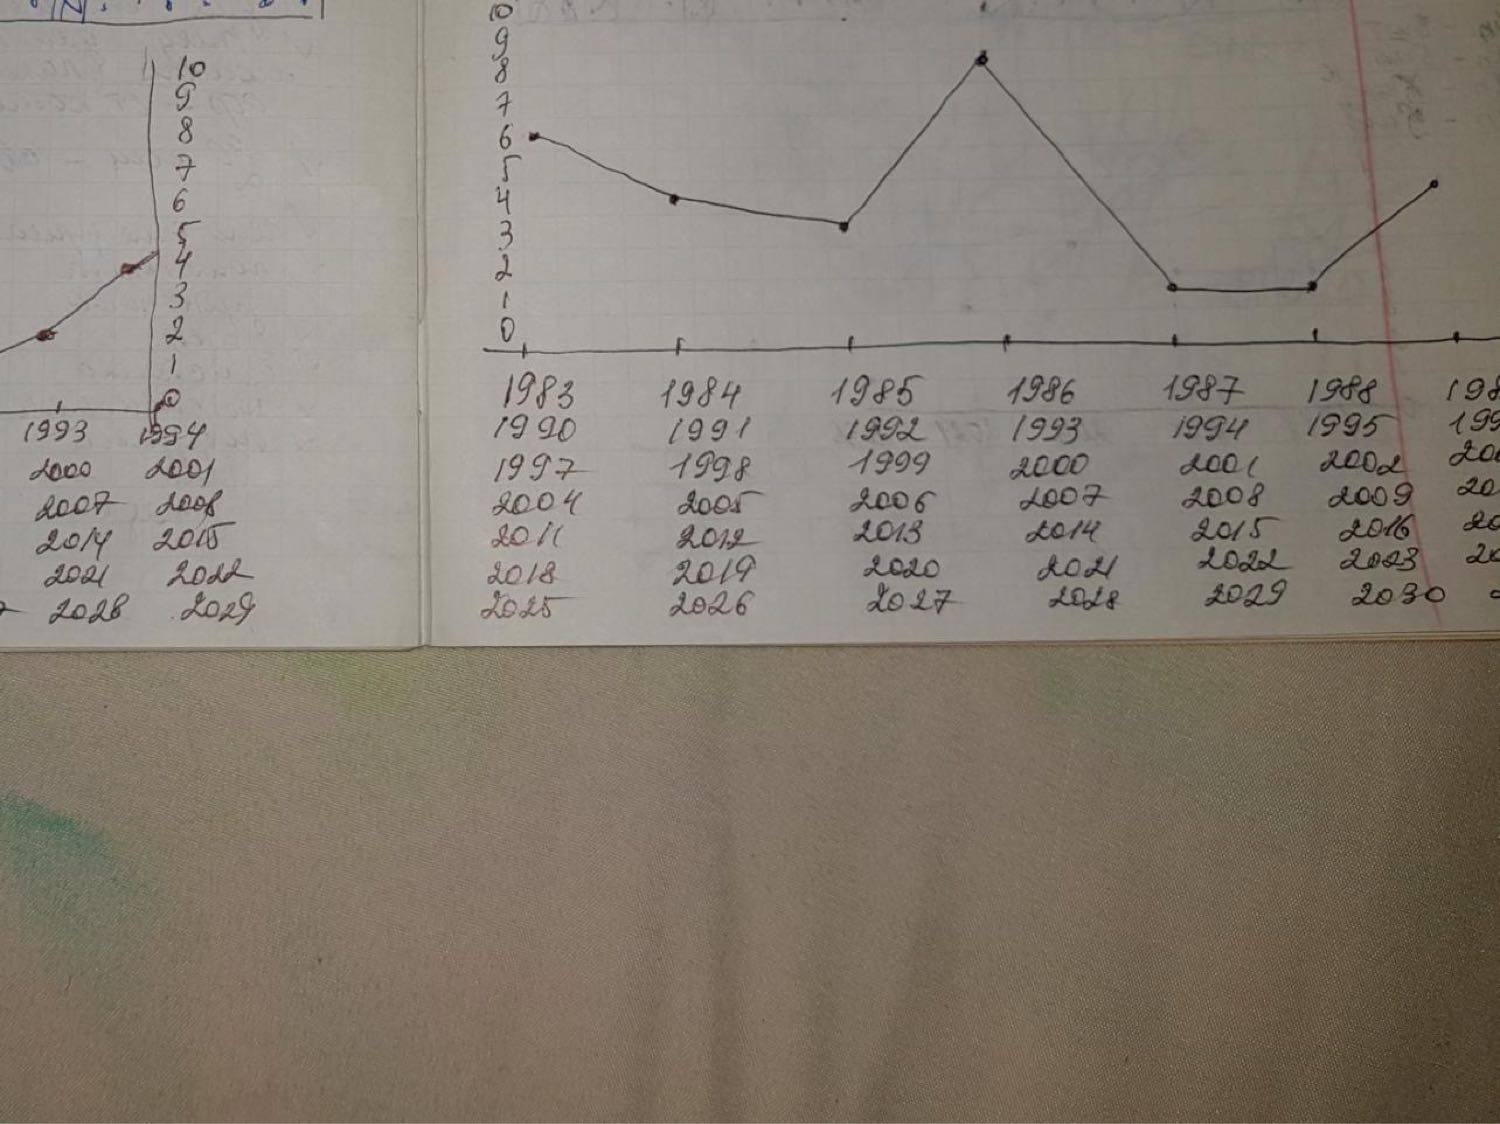 10
9
8
7
6
5
4
3
2
1
0
1993 1994
2000 2001
2007 2008
2014 2015
2021 2022
2028 2029
10
9
8
7
6
5
4
3
2
1
0
1983 1984 1985 1986 1987 1988 198
1990 1991 1992 1993 1994 1995 199
1997 1998 1999 2000 2001 2002 200
2004 2005 2006 2007 2008 2009 20
2011 2012 2013 2014 2015 2016 20
2018 2019 2020 2021 2022 2023 20
2025 2026 2027 2028 2029 2030